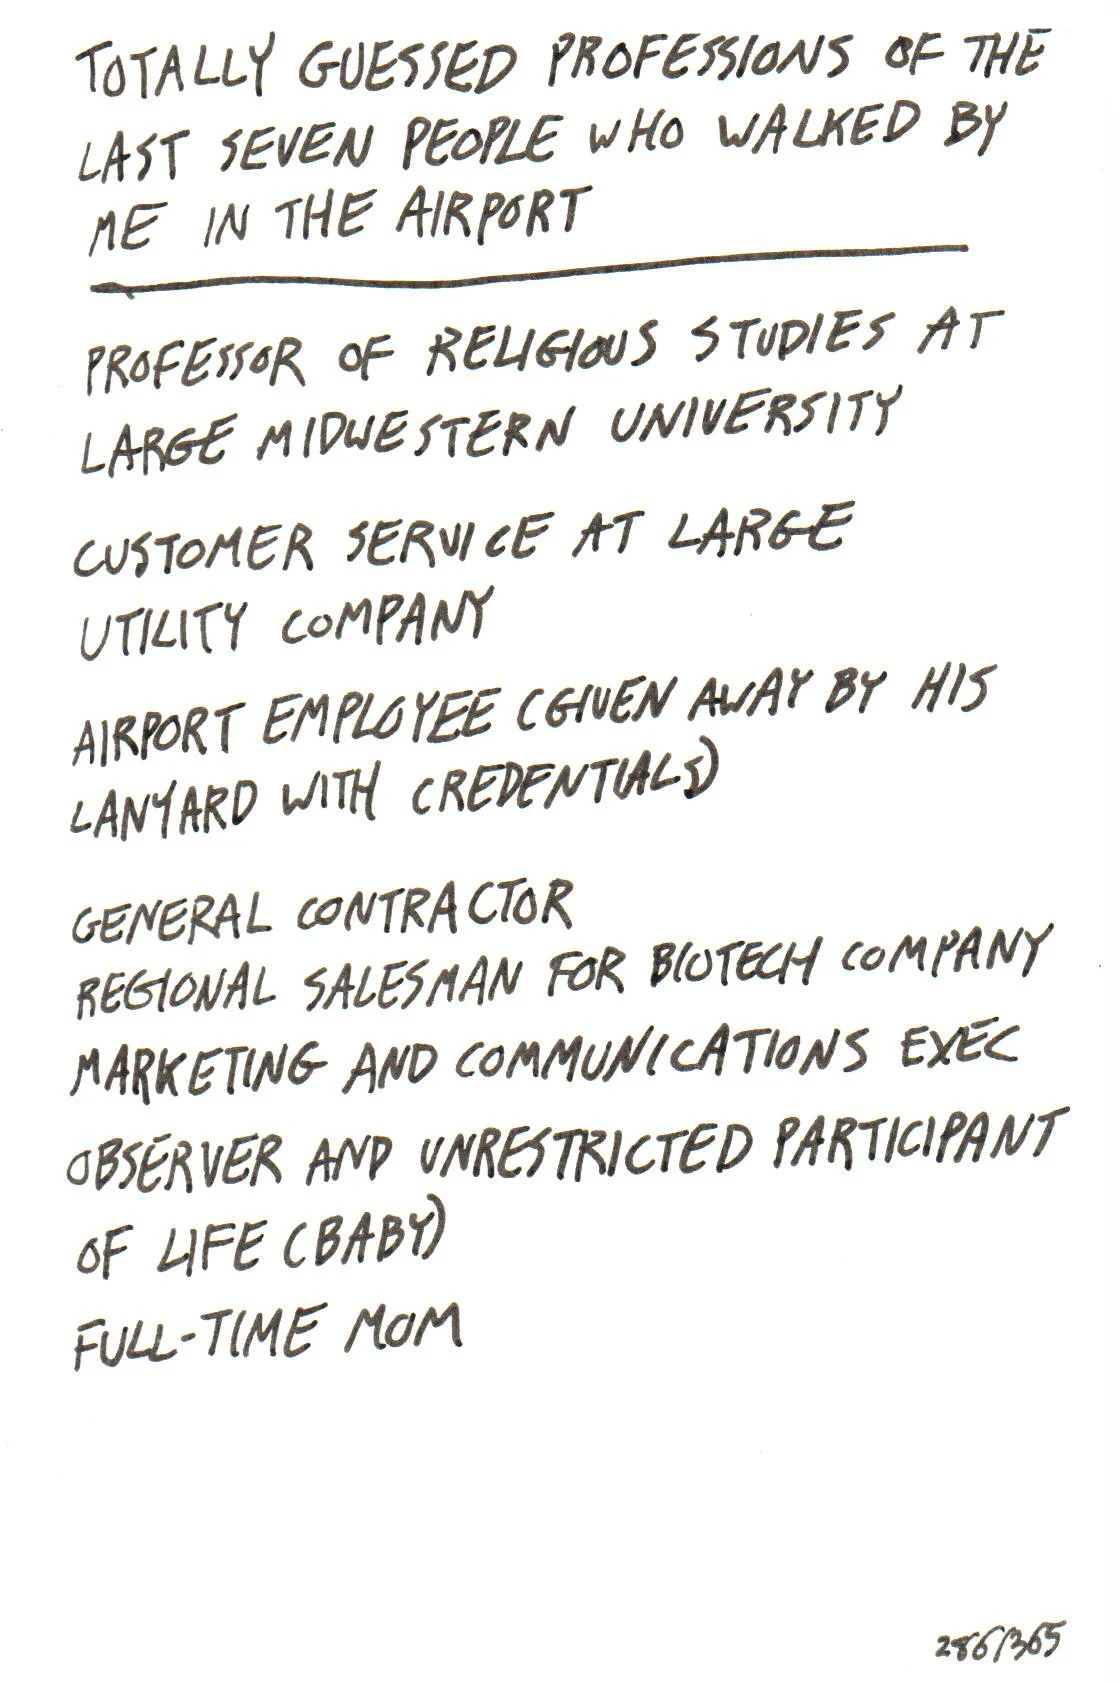 TOTALLY GUESSED PROFESSIONS OF THE
LAST SEVEN PEOPLE WHO WALKED BY
ME IN THE AIRPORT
PROFESSOR OF RELIGIOUS STUDIES AT
LARGE MIDWESTERN UNIVERSITY
CUSTOMER SERVICE AT LARGE
UTILITY COMPANY
AIRPORT EMPLOYEE (GIVEN AWAY BY HIS
LANYARD WITH CREDENTIALS)
GENERAL CONTRACTOR
REGIONAL SALESMAN FOR BIOTECH COMPANY
MARKETING AND COMMUNICATIONS EXEC
OBSERVER AND UNRESTRICTED PARTICIPANT
OF LIFE (BABY)
FULL-TIME MOM
286/365